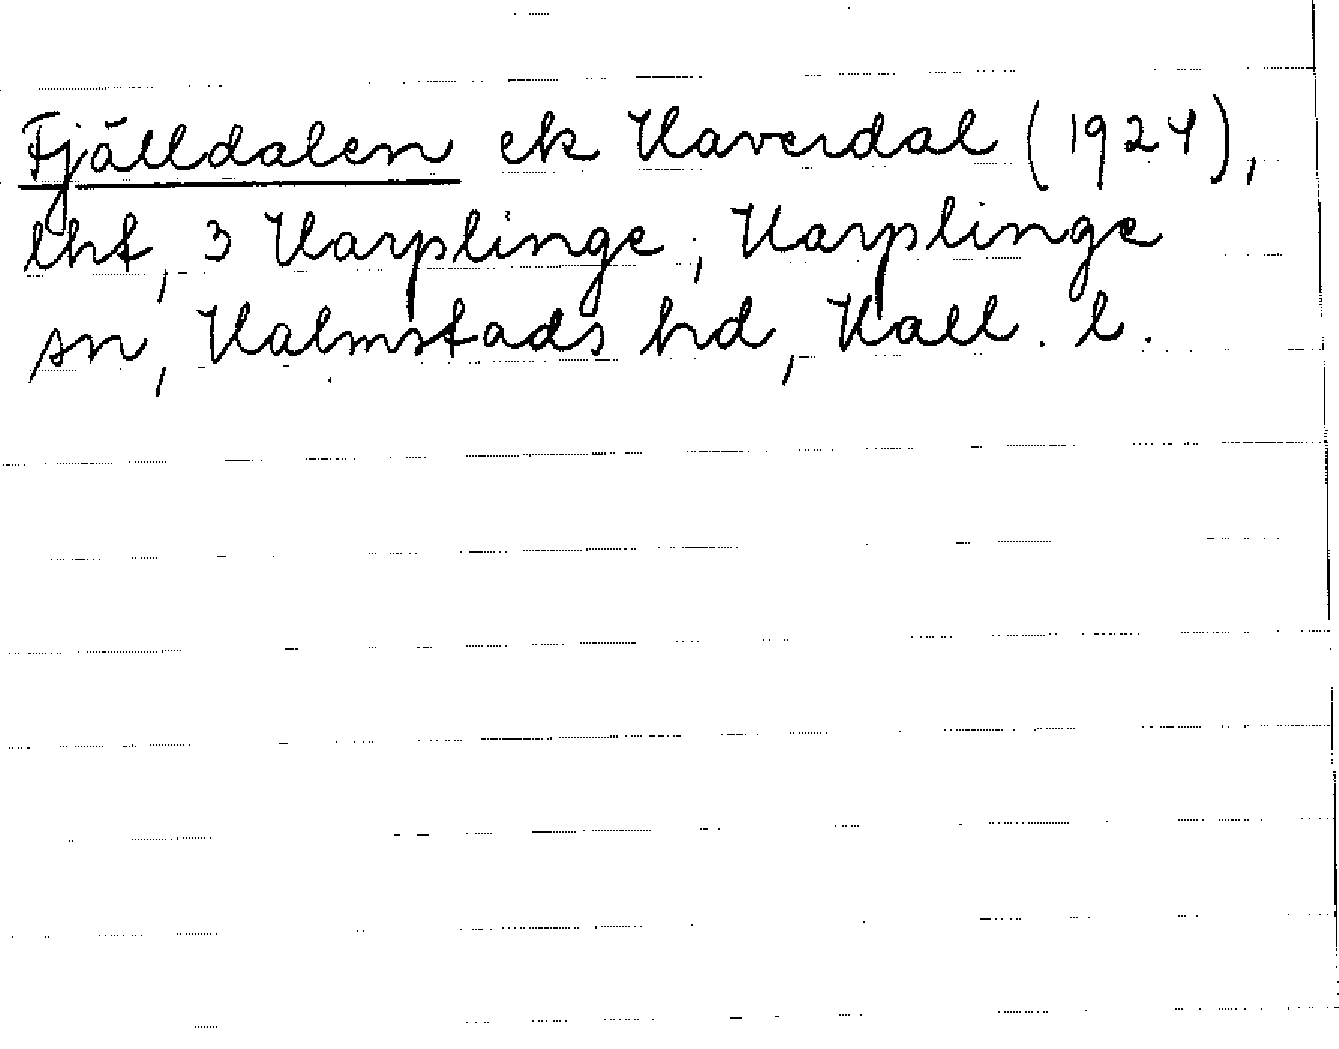 Fjälldalen ek Haverdal (1924),
lht, 3 Harplinge, Harplinge
sn, Halmstads hd, Hall. l.